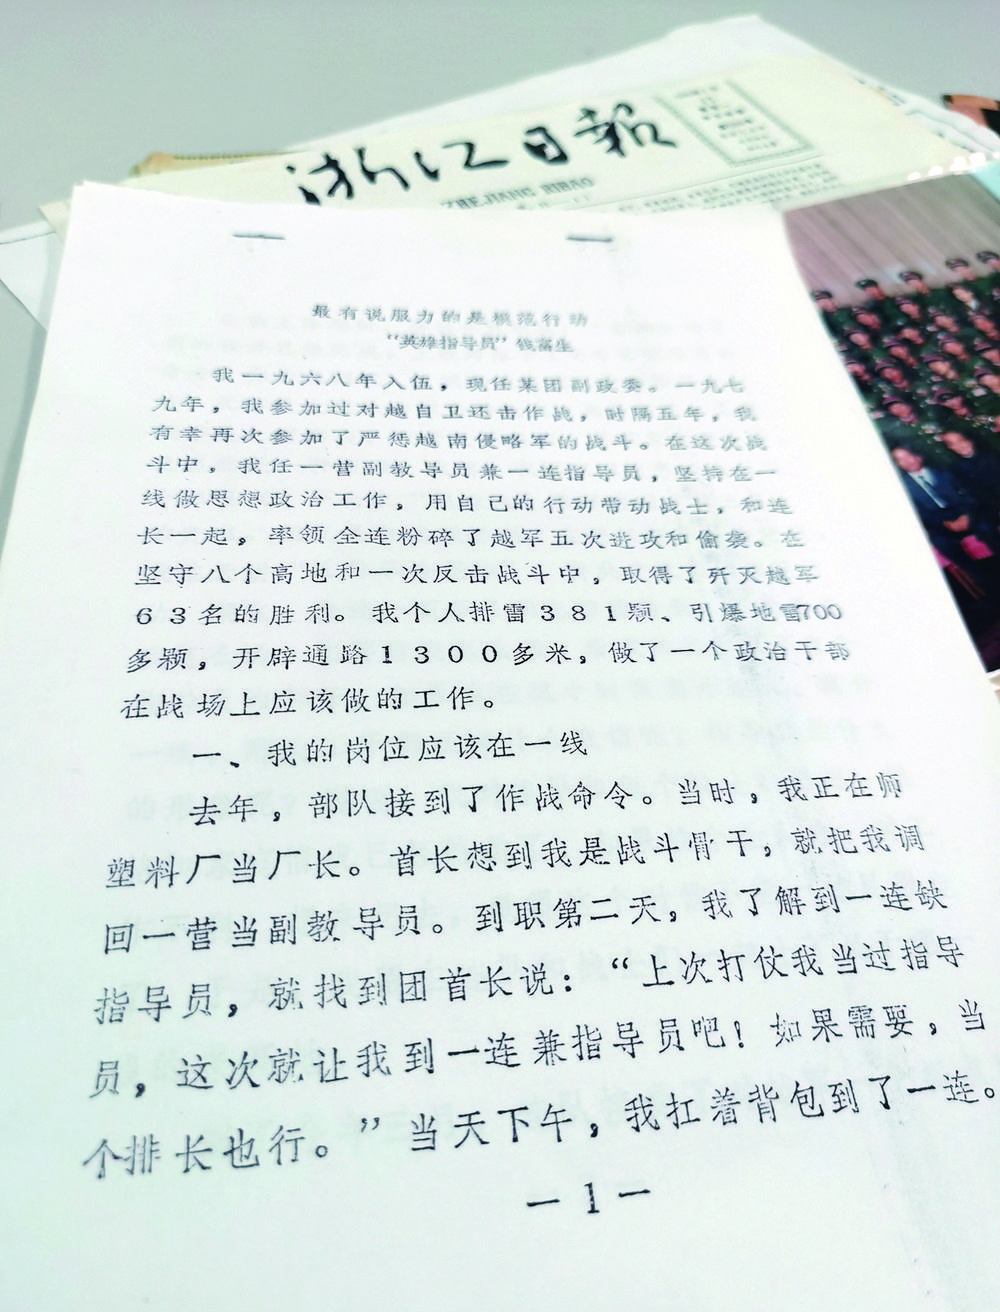 浙江日報
ZHEJIANG RIBAO
最有说服力的是模范行动
“英雄指导员”钱富生
我一九六八年入伍，现任某团副政委。一九七
九年，我参加过对越自卫还击作战，时隔五年，我
有幸再次参加了严惩越南侵略军的战斗。在这次战
斗中，我任一营副教导员兼一连指导员，坚持在一
线做思想政治工作，用自己的行动带动战士，和连
长一起，率领全连粉碎了越军五次进攻和偷袭。在
坚守八个高地和一次反击战斗中，取得了歼灭越军
63名的胜利。我个人排雷381颗、引爆地雷700
多颗，开辟通路1300多米，做了一个政治干部
在战场上应该做的工作。
一、我的岗位应该在一线
去年，部队接到了作战命令。当时，我正在师
塑料厂当厂长。首长想到我是战斗骨干，就把我调
回一营当副教导员。到职第二天，我了解到一连缺
指导员，就找到团首长说：“上次打仗我当过指导
员，这次就让我到一连兼指导员吧！如果需要，当
个排长也行。”当天下午，我扛着背包到了一连。
—1—